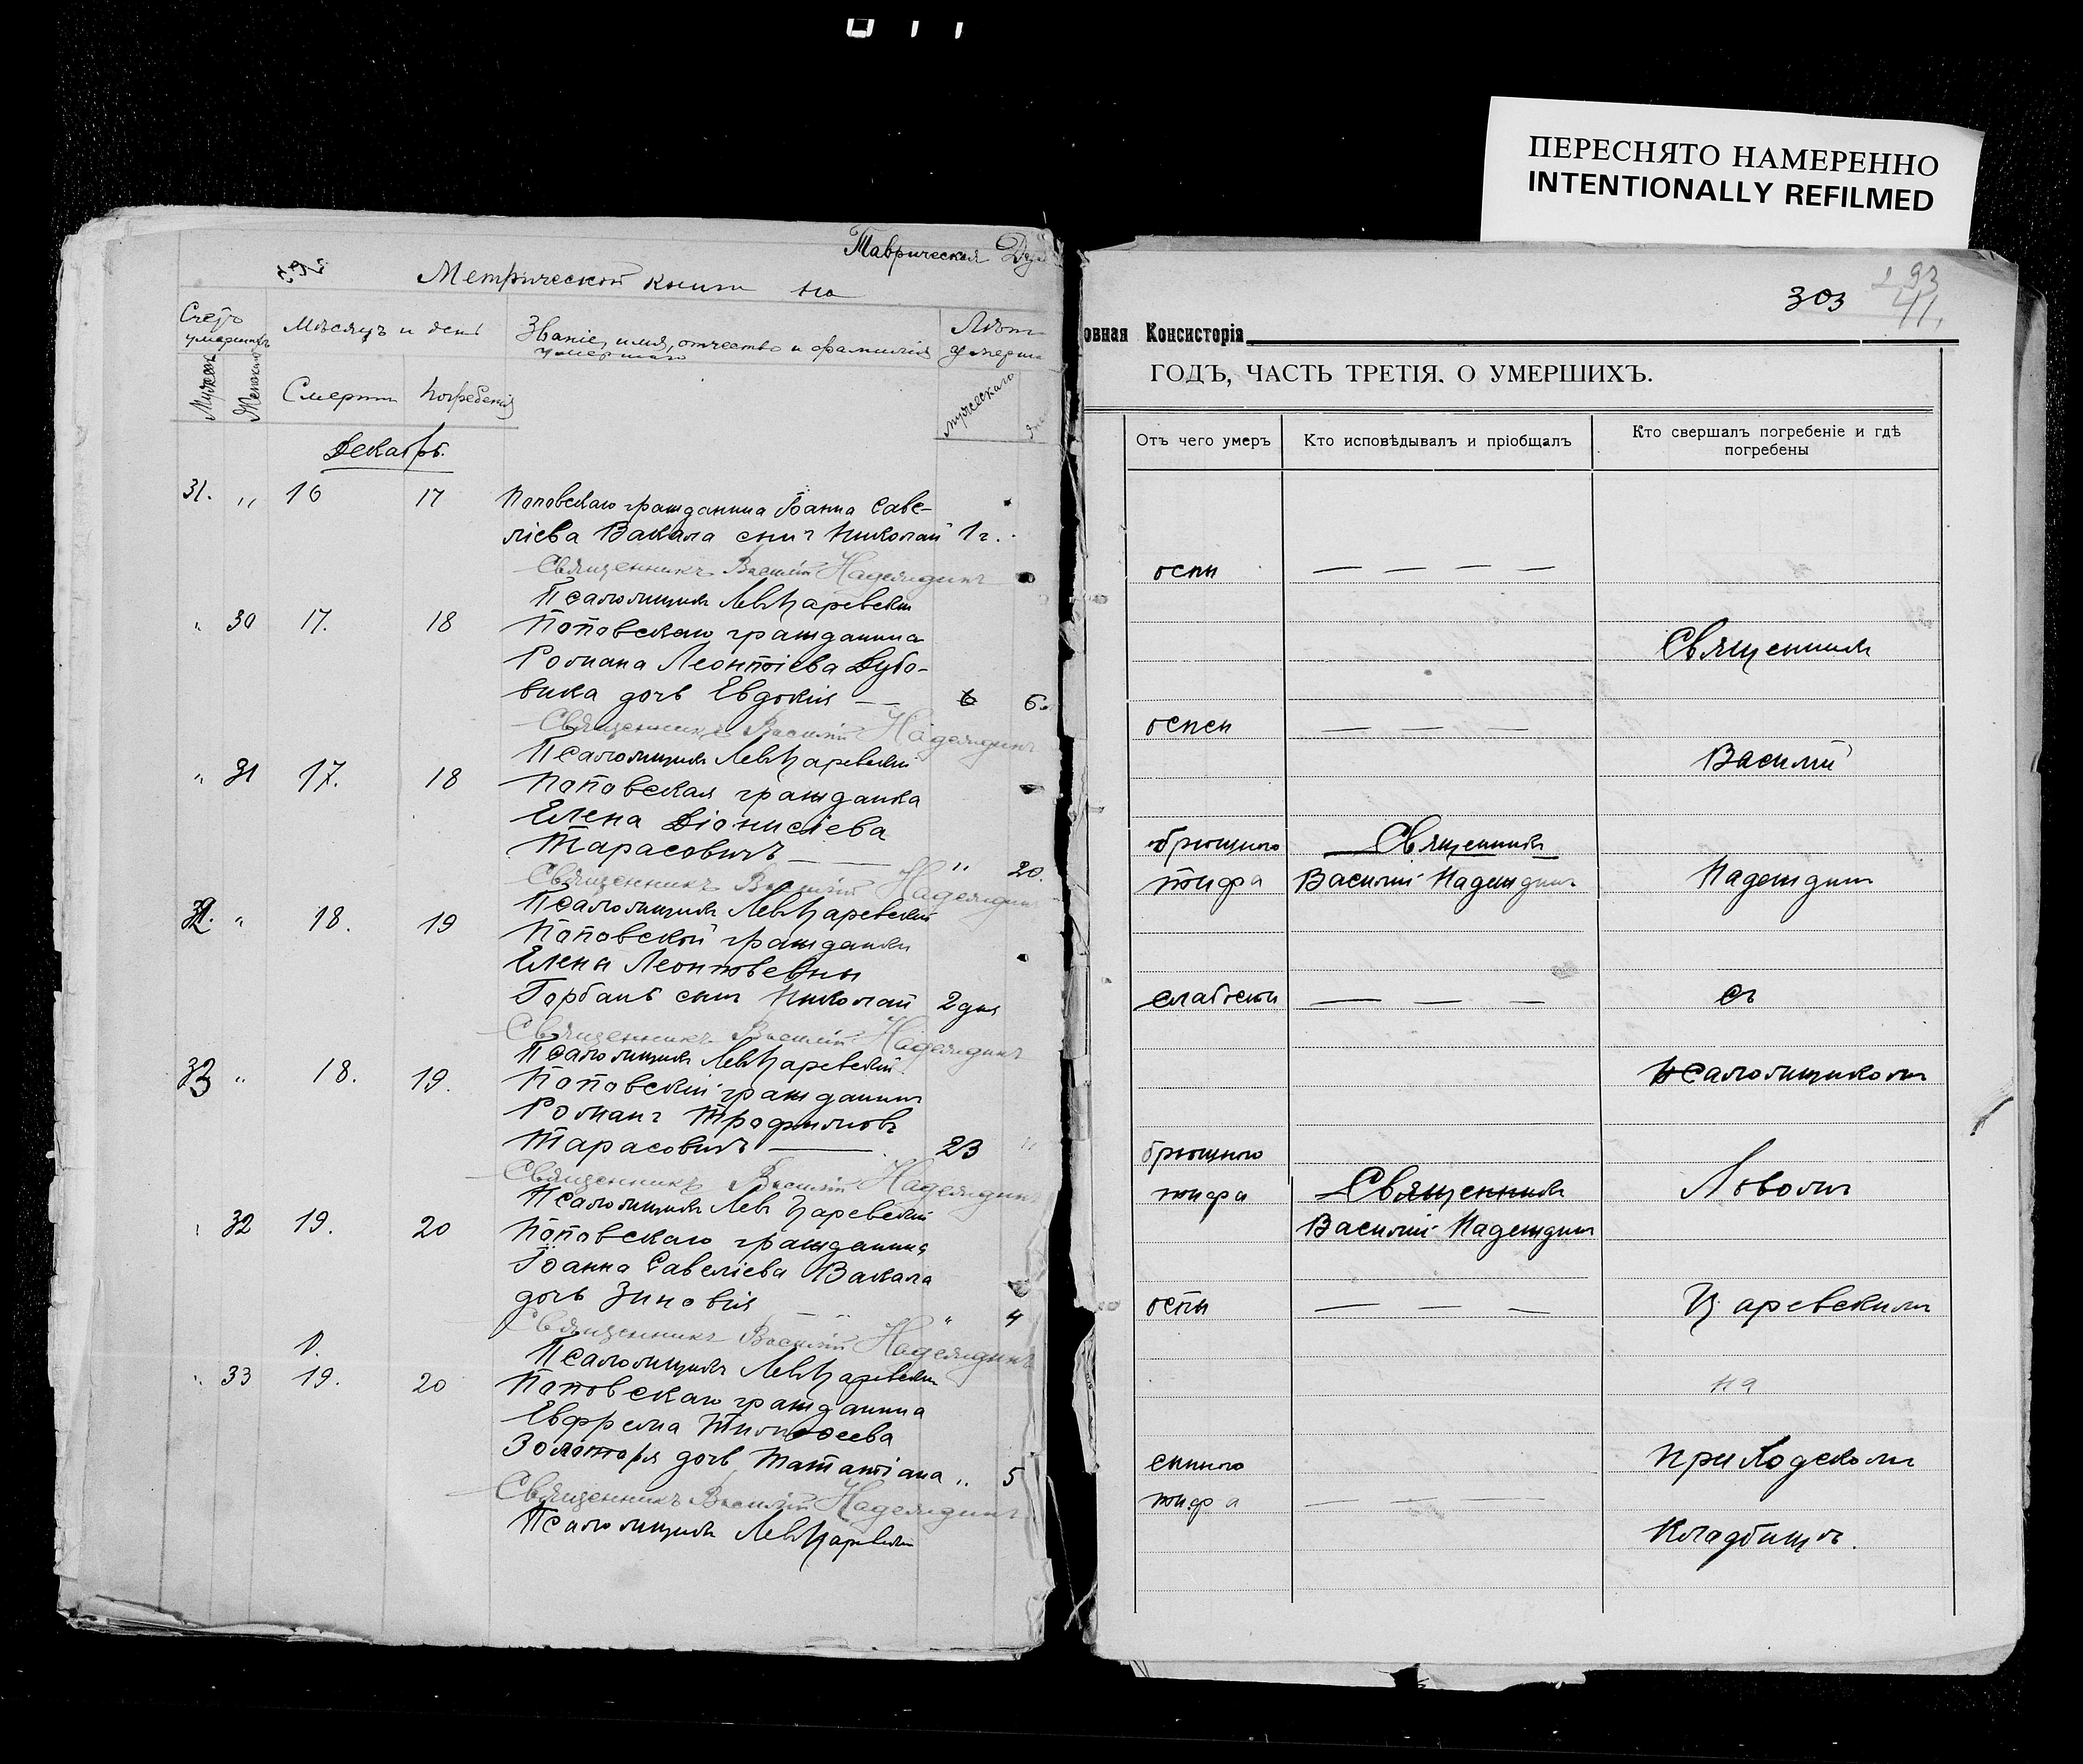 ПЕРЕСНЯТО НАМЕРЕННО
INTENTIONALLY REFILMED
Таврическая Дух
Метрической книги на
Счетъ умершихъ
Мужск
Женскихъ
Мѣсяцъ и день
Смерти
погребенія
Званіе, имя, отчество и фамилія
умершаго
Лѣта
умерша
мужескаго
Декабрь.
31. " 16 17 Поповскаго гражданина Іоанна Саве-
ліева Вакала сынъ Николай 1 г.
Священникъ Василій Надеждинъ
Псаломщикъ Левъ Царевскій
" 30 17. 18 Поповскаго гражданина
Романа Леонтіева Дубо-
вика дочь Евдокія — — 6 6.
Священникъ Василій Надеждинъ
Псаломщикъ Левъ Царевскій
" 31 17. 18 Поповская гражданка
Елена Діонисіева
Тарасовичъ — — " 20.
Священникъ Василій Надеждинъ
Псаломщикъ Левъ Царевскій
32. " 18. 19 Поповской гражданки
Елены Леонтьевны
Горбань сынъ Николай 2 дня
Священникъ Василій Надеждинъ
Псаломщикъ Левъ Царевскій
33 " 18. 19. Поповскій гражданинъ
Романъ Трофимовъ
Тарасовичъ — 23 "
Священникъ Василій Надеждинъ
Псаломщикъ Левъ Царевскій
" 32 19. 20 Поповскаго гражданина
Іоанна Савеліева Вакала
дочь Зиновія — " 4
Священникъ Василій Надеждинъ
Псаломщикъ Левъ Царевскій
" 33 19. 20 Поповскаго гражданина
Евфрема Тимофеева
Золотаря дочь Татіана " 5
Священникъ Василій Надеждинъ
Псаломщикъ Левъ Царевскій
303
293
41.
овная Консисторія
ГОДЪ, ЧАСТЬ ТРЕТІЯ. О УМЕРШИХЪ.
Отъ чего умеръ
Кто исповѣдывалъ и пріобщалъ
Кто свершалъ погребеніе и гдѣ
погребены
оспы — — — —
Священникъ
оспы — — —
Василій
брюшного Священникъ
тифа Василій Надеждинъ Надеждинъ
слабости — — — съ
псаломщикомъ
брюшного
тифа Священникъ Львомъ
Василій Надеждинъ
оспы — — — Царевскимъ
на
сыпного приходскомъ
тифа — — —
кладбищѣ.